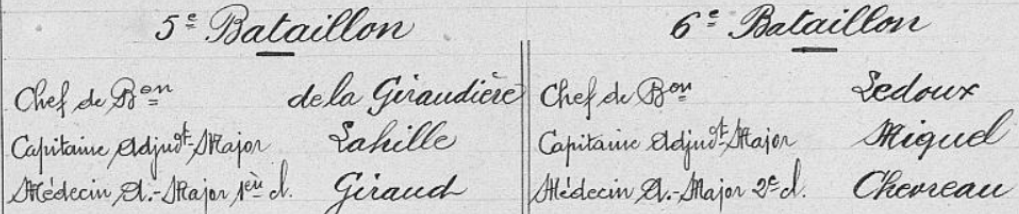 5e Bataillon
Chef de Bon de la Giraudière
Capitaine Adjudt-Major Lahille
Médecin A.-Major 1ère cl. Giraud
6e Bataillon
Chef de Bon Ledoux
Capitaine Adjudt-Major Miquel
Médecin A.-Major 2e cl. Chevreau